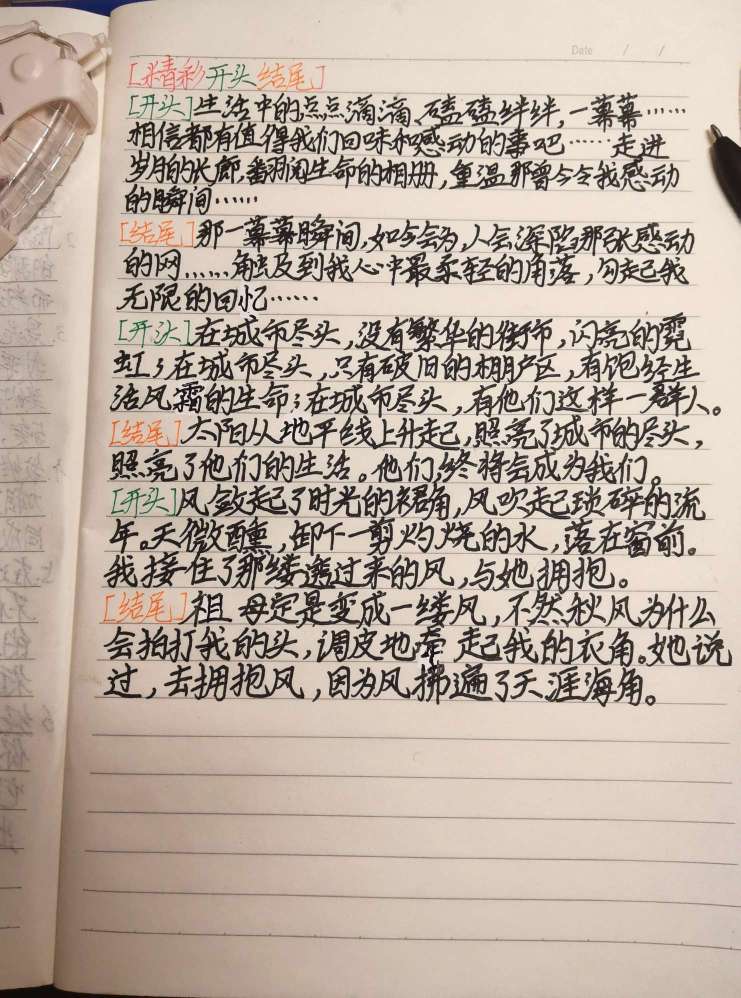 Date / /
[精彩开头结尾]
[开头]生活中的点点滴滴、磕磕绊绊,一幕幕……
相信都有值得我们回味和感动的事吧……走进
岁月的长廊,翻阅生命的相册,重温那曾今令我感动
的瞬间……
[结尾]那一幕幕瞬间,如今会为,人会深陷那张感动
的网……触及到我心中最柔轻的角落,勾起我
无限的回忆……
[开头]在城市尽头,没有繁华的街市,闪亮的霓
虹;在城市尽头,只有破旧的棚户区,有饱经生
活风霜的生命;在城市尽头,有他们这样一群人。
[结尾]太阳从地平线上升起,照亮了城市的尽头,
照亮了他们的生活。他们,终将会成为我们。
[开头]风敛起了时光的裙角,风吹起琐碎的流
年。天微醺,卸下一剪灼烧的水,落在窗前。
我接住了那缕透过来的风,与她拥抱。
[结尾]祖母定是变成一缕风,不然秋风为什么
会拍打我的头,调皮地牵起我的衣角。她说
过,去拥抱风,因为风拂遍了天涯海角。